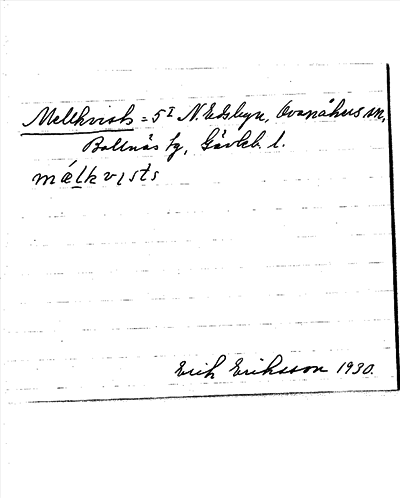 Mellkvists = 5 I N. Edsbyn, Ovanåkers sn,
Bollnäs tg, Gävleb. l.
mælkvɪsts
Erik Eriksson 1930.